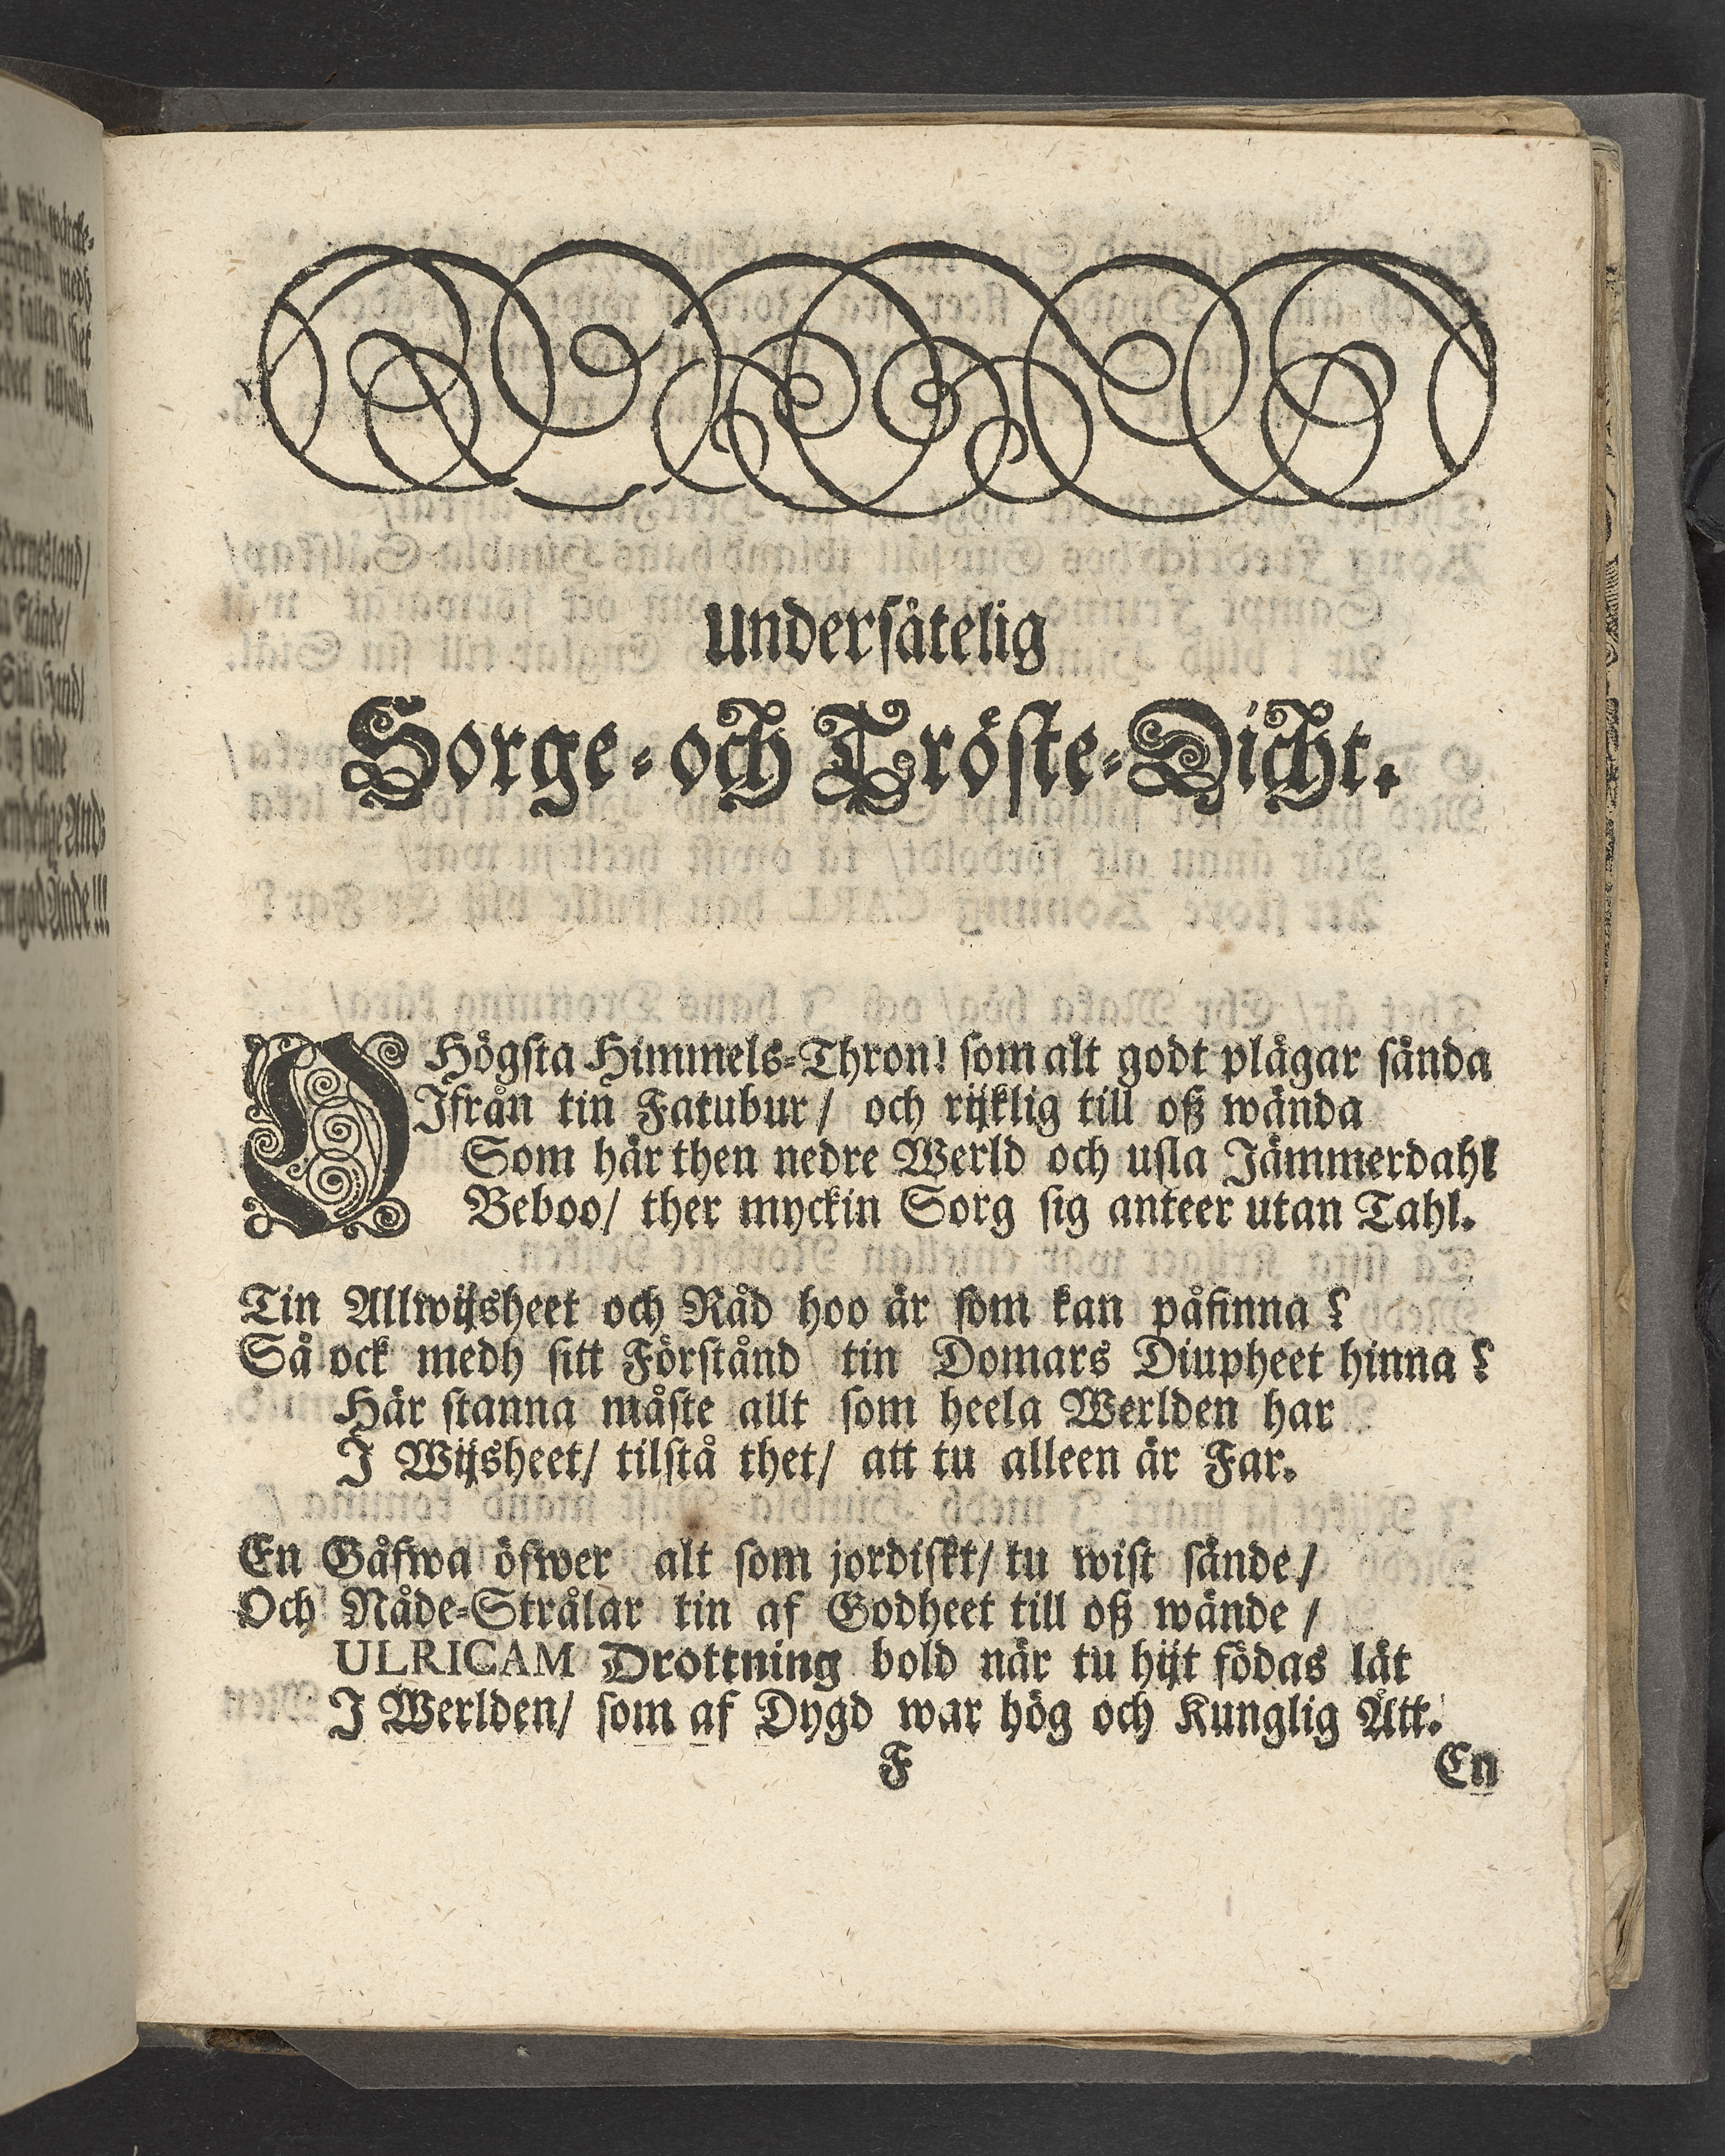 Undersåtelig
Sorge-och Tröste-Dicht.
O Högsta Himmels-Thron! som alt godt plägar sända
Ifrån tin Fatubur / och rijklig till oß wända
Som här then nedre Werld och usla Jämmerdahl
Beboo / ther myckin Sorg sig anteer utan Tahl.
Tin Allwijsheet och Råd hoo är som kan påfinna ?
Så ock medh sitt Förstånd tin Domars Diupheet hinna ?
Här stanna måste allt som heela Werlden har
I Wijsheet / tilstå thet / att tu alleen är Far.
En Gåfwa öfwer alt som jordiskt / tu wist sände /
Och Nåde-Strålar tin af Godheet till oß wände /
ULRICAM Drottning bold när tu hijt födas lät
I Werlden / som af Dygd war hög och Kunglig Ätt.
F
En